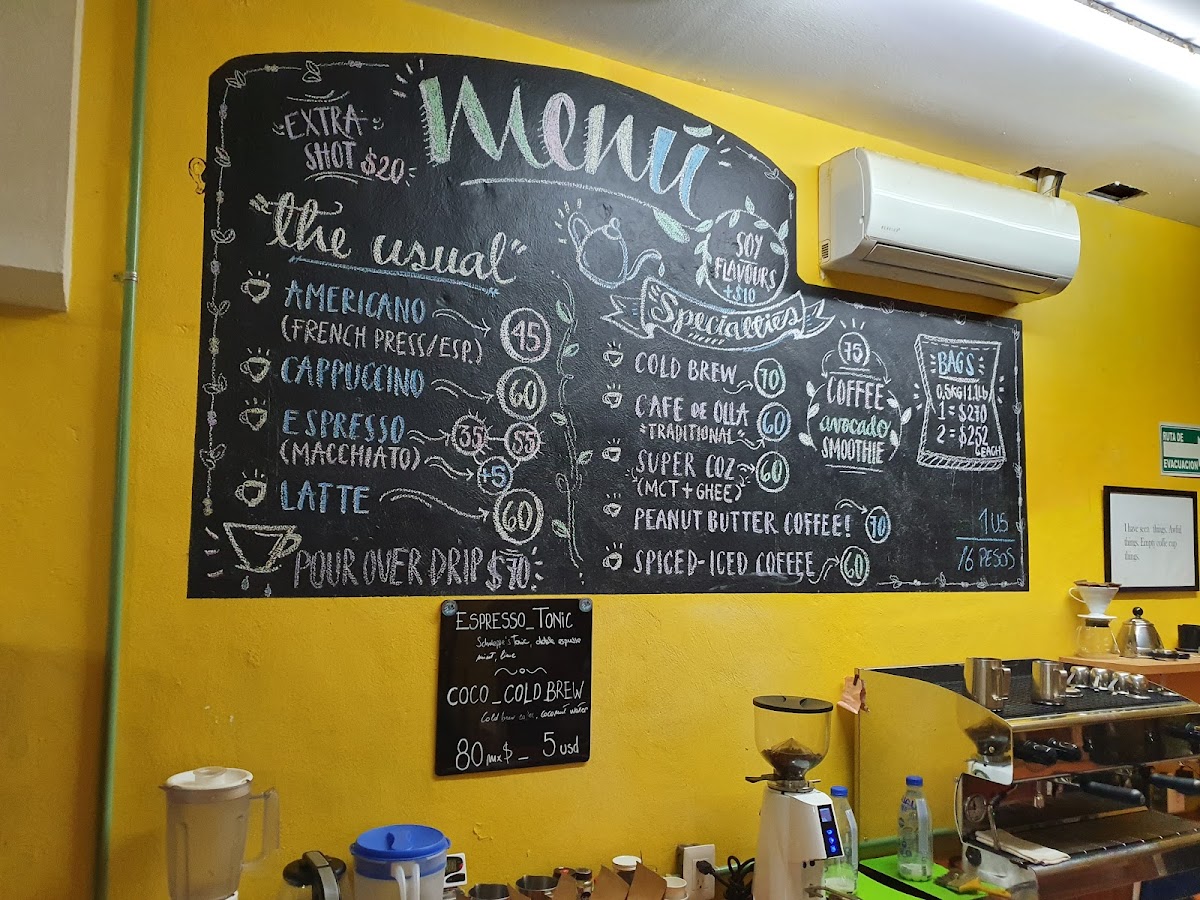 Menú
EXTRA
SHOT $20
"the usual"
AMERICANO 45
(FRENCH PRESS/ESP.)
CAPPUCCINO 60
ESPRESSO 35 55
(MACCHIATO) +5
LATTE 60
POUR OVER DRIP $70
SOY
FLAVOURS
+$10
"Specialties"
COLD BREW 70
CAFE DE OLLA 60
"TRADITIONAL"
SUPER COZ 60
(MCT + GHEE)
PEANUT BUTTER COFFEE! 70
SPICED-ICED COFFEE 60
75
COFFEE
avocado
SMOOTHIE
BAGS
0,5KG|1.1Lb/
1 = $270
2 = $252
EACH
1 US
16 PESOS
ESPRESSO_TONIC
Tonic, espresso
mint, lime
COCO_COLD BREW
Cold brew, coconut water
80 mx$ _ 5 usd
RUTA DE
EVACUACION
I have seen things. Awful
things. Empty coffe cup
things.